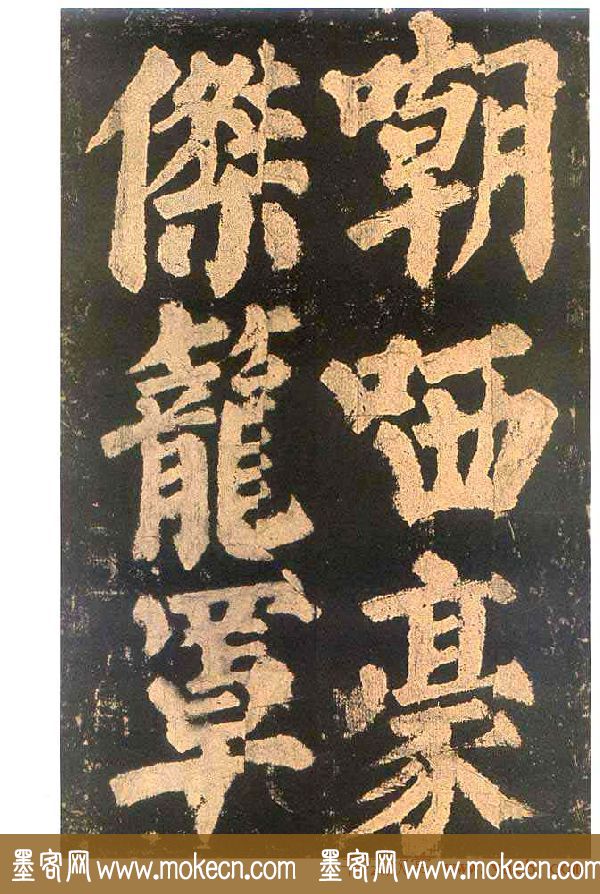 嘲哂豪
傑龍罩
墨客网 www.mokecn.com 墨客网 www.mokecn.com